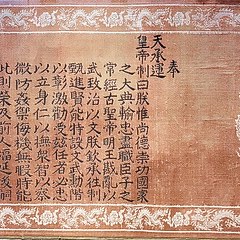 奉
天承運
皇帝制曰朕惟尚德崇功國家
之大典輸忠盡職臣子之
常經古聖帝明王戡亂以
武致治以文朕欽承往制
甄進賢能特設文武勳階
以彰激勸爰茲任者必忠
以立身仁以撫衆智以察
微防姦禦侮機無暇時能
此則榮及前人福延後嗣